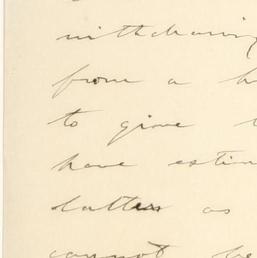 withdrawing
from a h
to give
have estim
latter as
cannot be